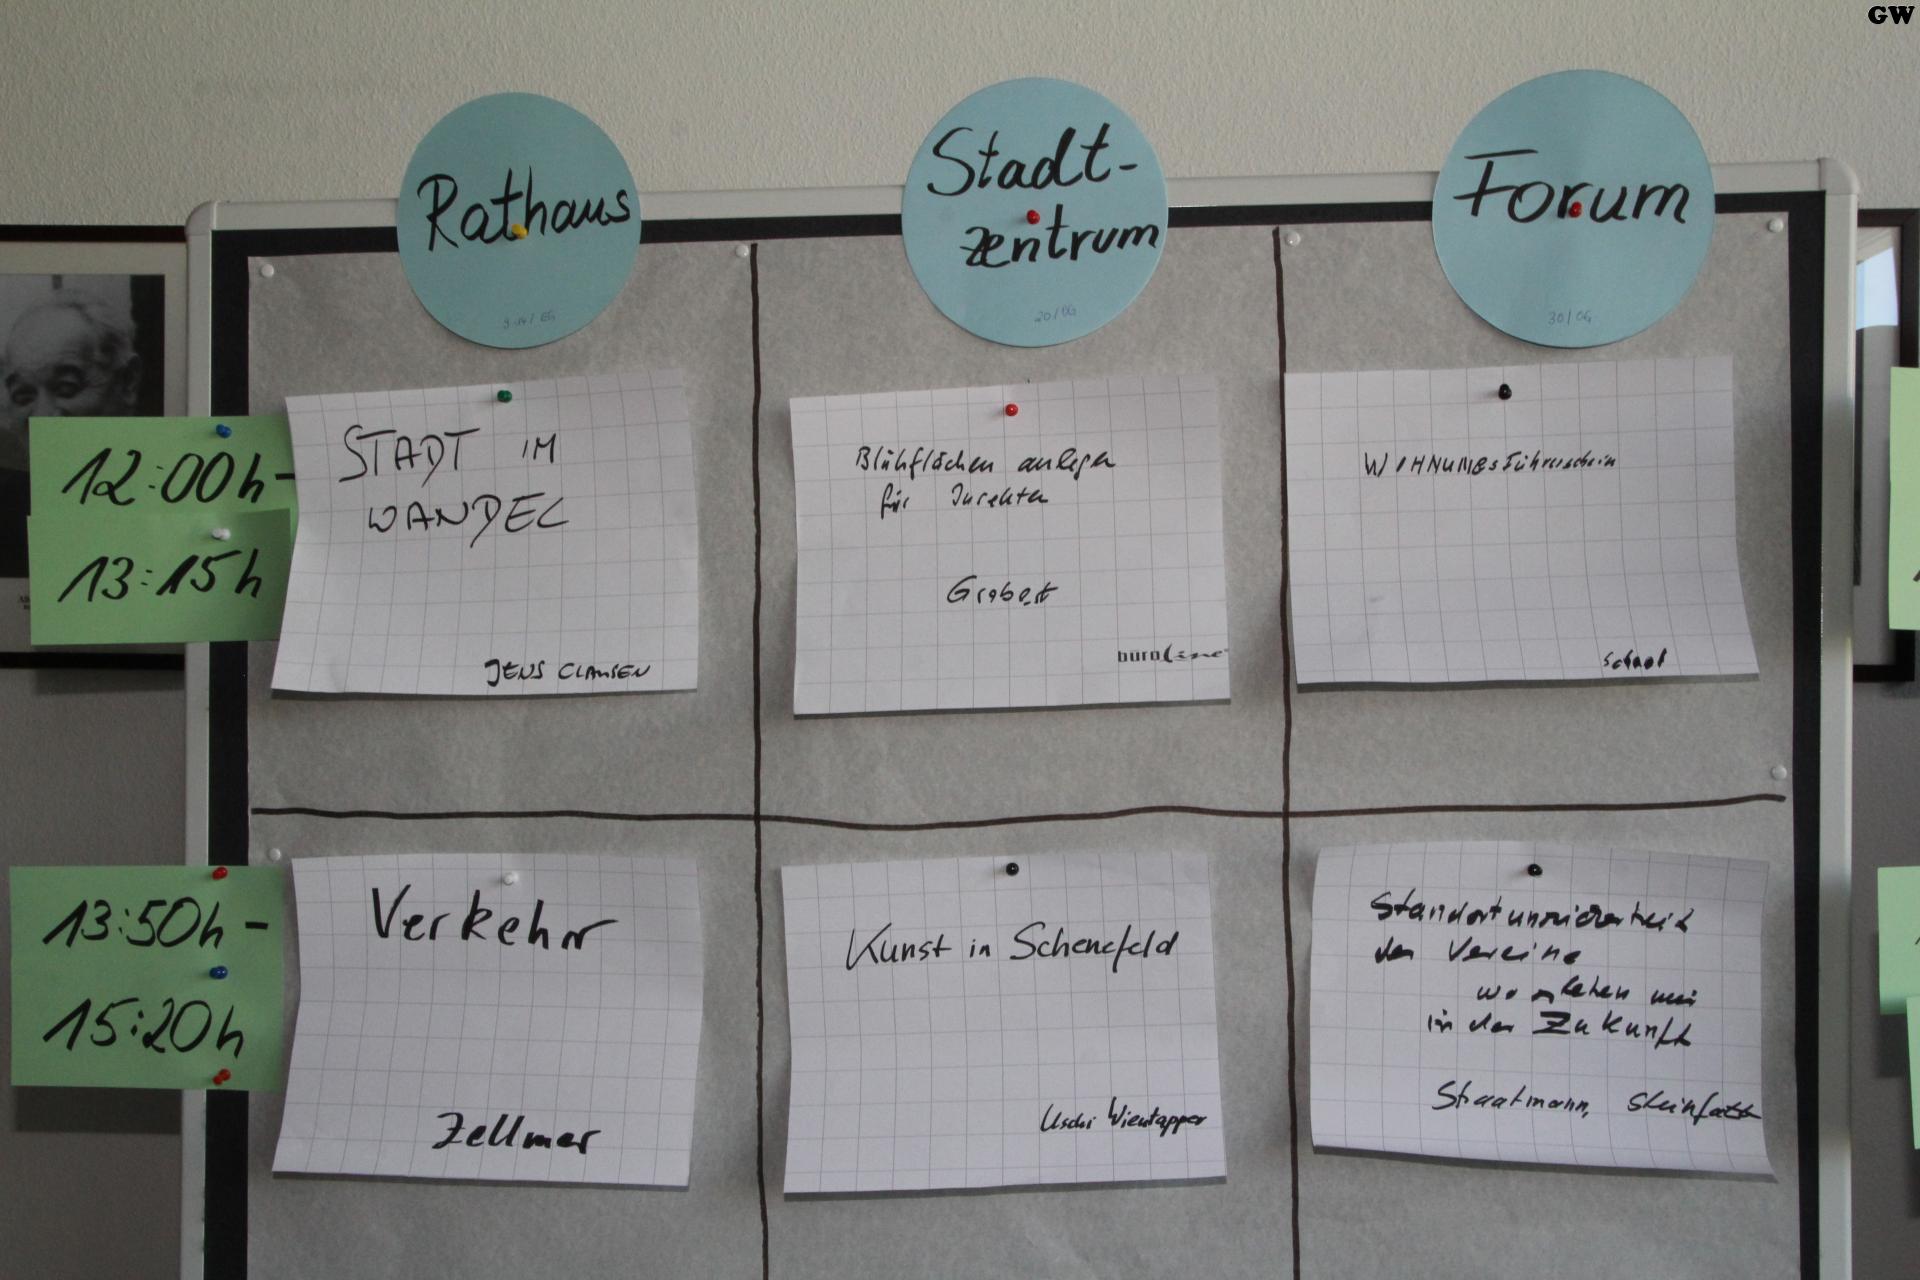 GW
Rathaus
Stadt-
zentrum
Forum
20/OG
30/OG
12:00h-
13:15h
STADT IM
WANDEL
JENS CLAUSEN
Blühflächen anlegen
für Insekten
Grabert
büroline
WOHNUNGSführerschein
Schaaf
13:50h-
15:20h
Verkehr
Zellmer
Kunst in Schenefeld
Uschi Wientapper
Standortunsicherheit
der Vereine
wo stehen wir
in der Zukunft
Staatmann,